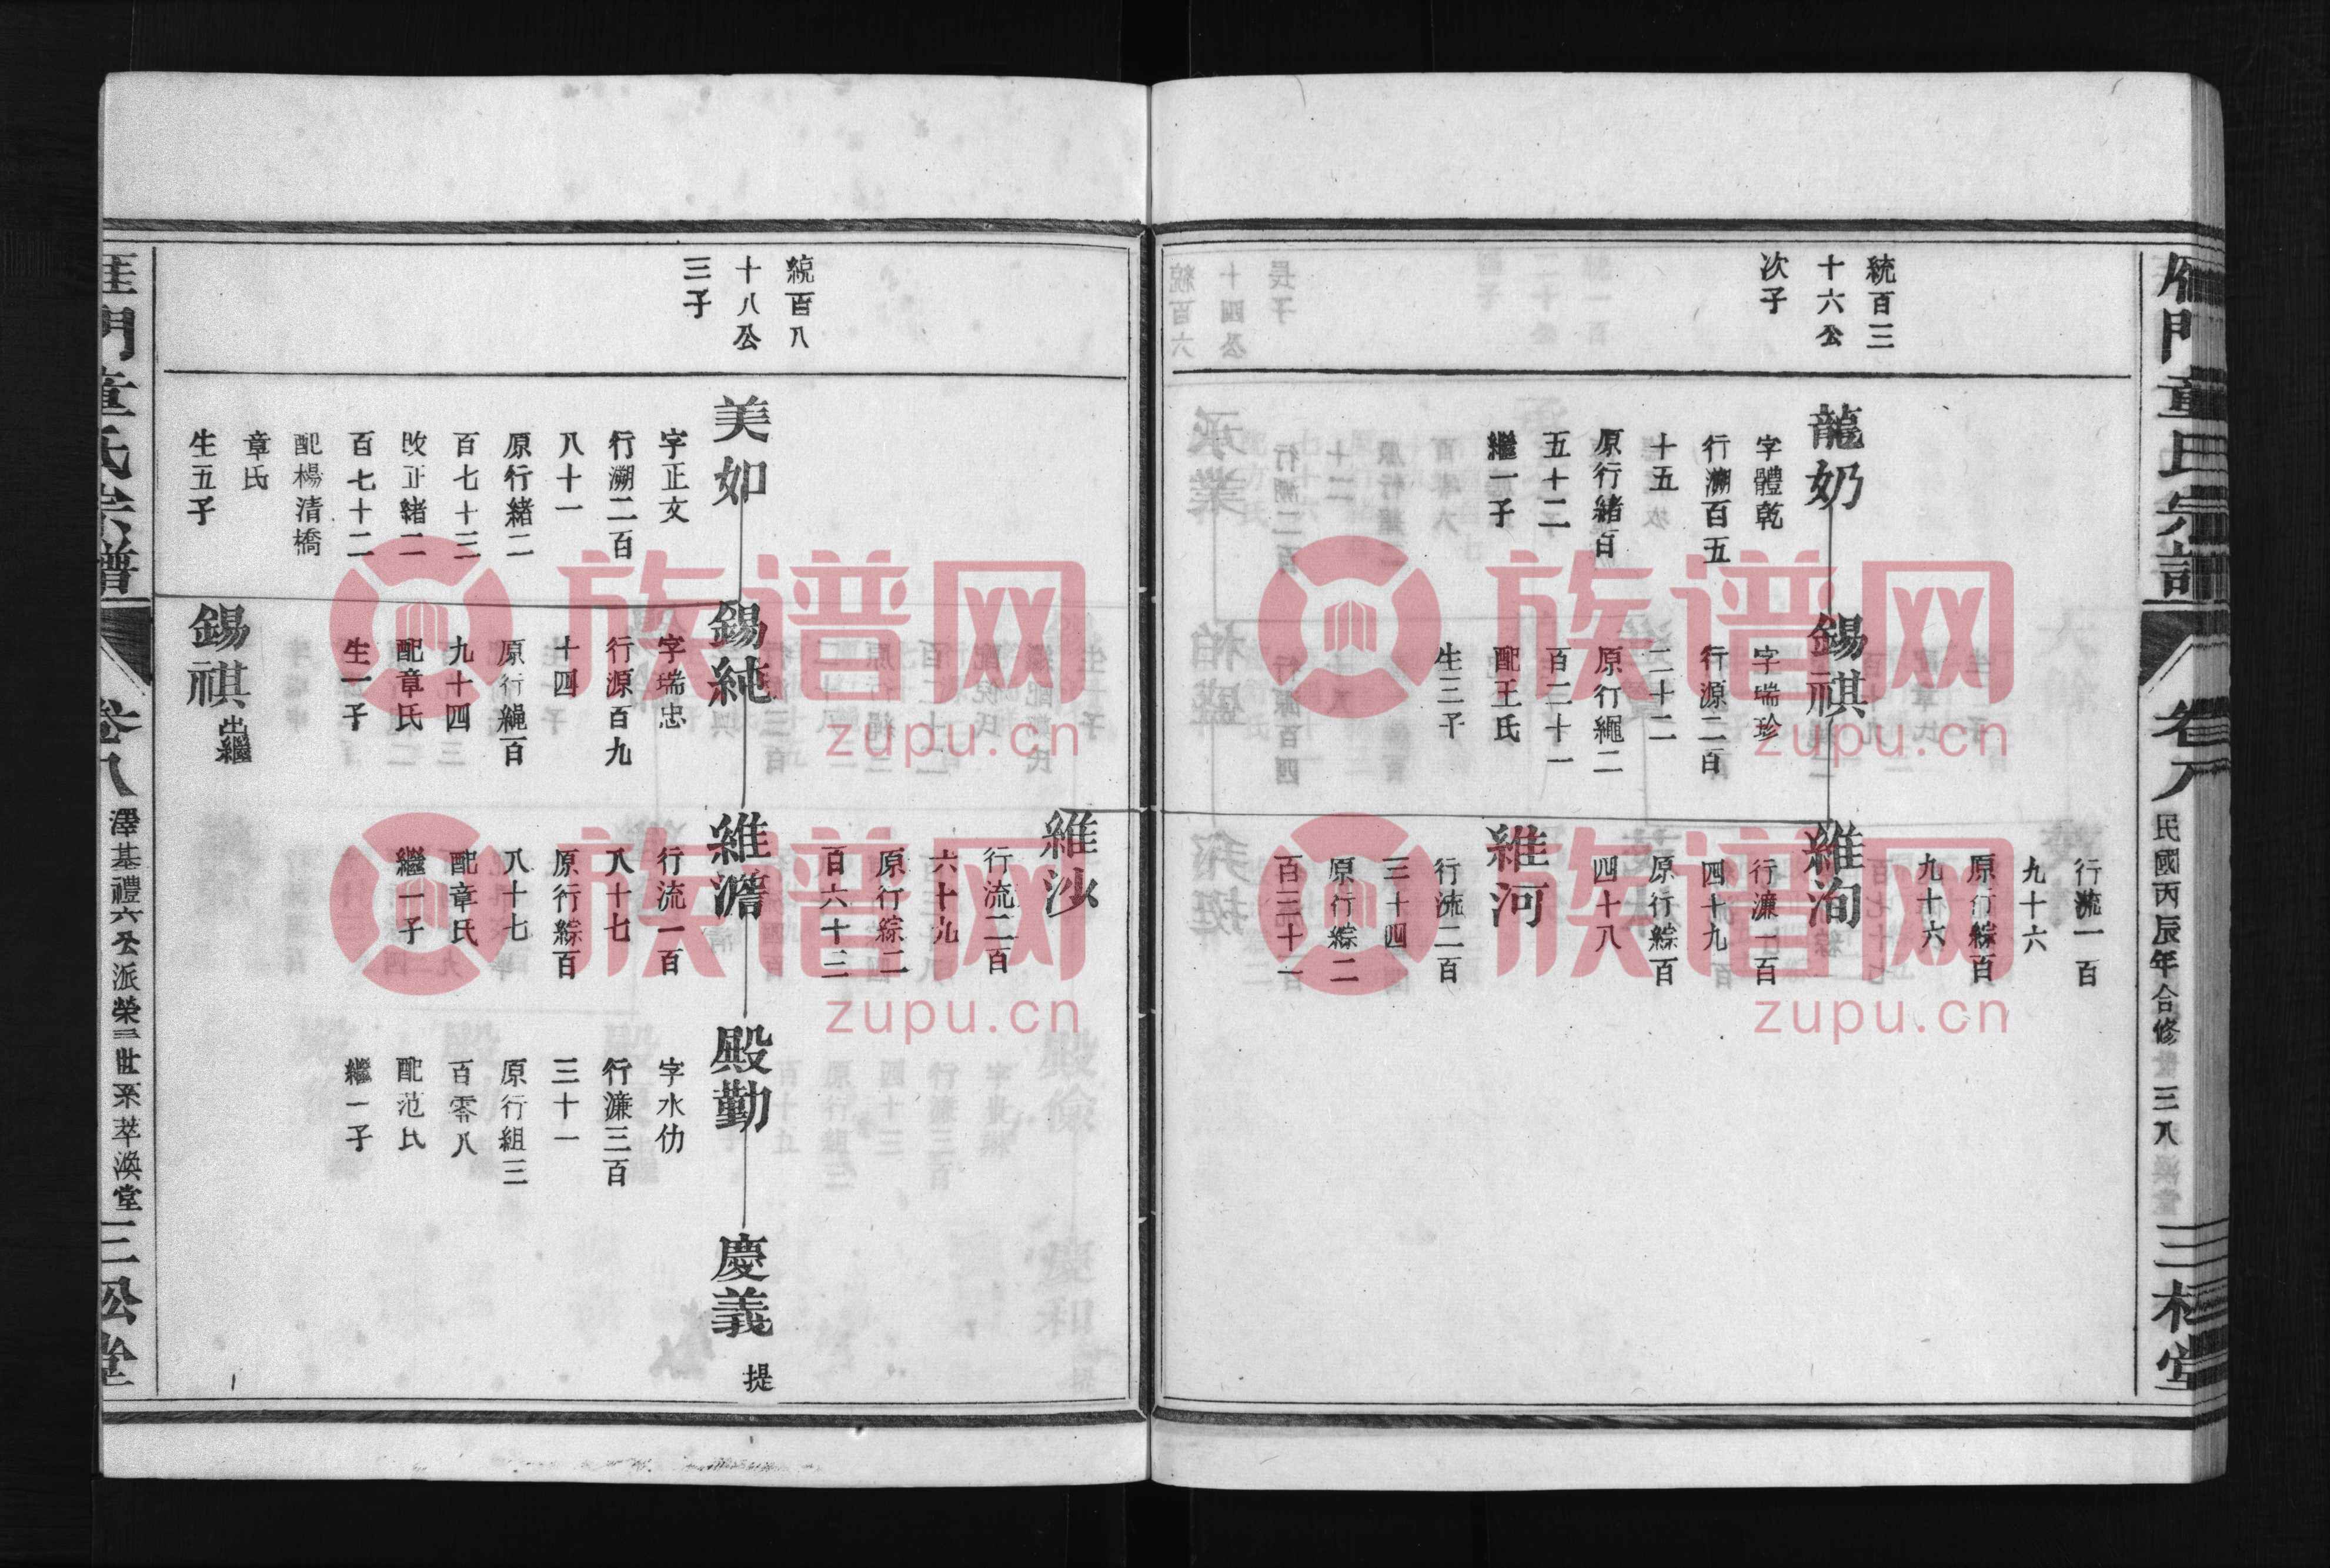 雁門童氏宗譜
卷八
民國丙辰年合修
三八
三松堂
統百三
十六公
次子
龍奶
字體乾
行溯百五
十五
原行緒百
五十二
繼一子
錫祺
字瑞珍
行源二百
二十二
原行繩二
百三十一
配王氏
生三子
行流一百
九十六
原行綜百
九十六
維洵
行濂一百
四十九
原行綜百
四十八
維河
行流二百
三十四
原行綜二
百三十一
維沙
行流二百
六十九
原行綜二
百六十三
統百八
十八公
三子
美如
字正文
行溯二百
八十一
原行緒二
百七十三
改正緒二
百七十二
配楊清橋
章氏
生五子
錫純
字瑞忠
行源百九
十四
原行繩百
九十四
配章氏
生一子
維濳
行流一百
八十七
原行綜百
八十七
配章氏
繼一子
殿勤
字水仂
行濂三百
三十一
原行組三
百零八
配范氏
繼一子
慶義
提
錫祺
出繼
雁門童氏宗譜
卷八
澤基禮六公派榮三世系萃渙堂
三松堂
族谱网
zupu.cn
族谱网
zupu.cn
族谱网
zupu.cn
族谱网
zupu.cn